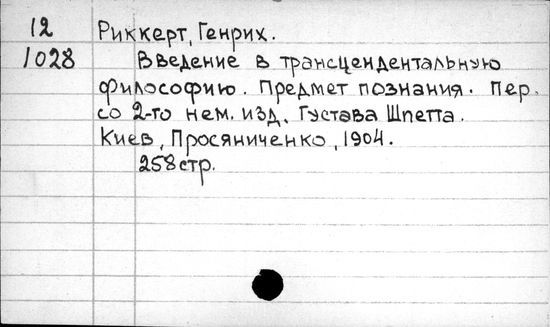 12 Риккерт, Генрих.
1028 Введение в трансцендентальную
философию. Предмет познания. Пер.
со 2-го нем. изд. Густава Шпетта.
Киев, Просяниченко, 1904.
258 стр.